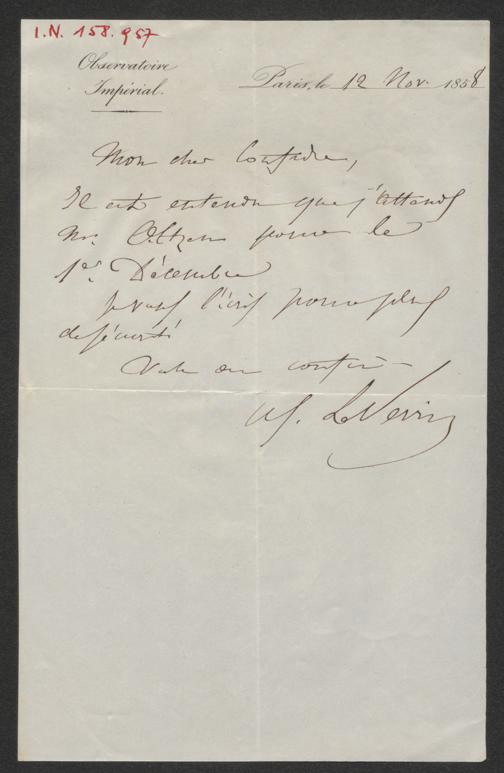 I.N. 158.957
Observatoire
Impérial.
Paris, le 12 Nov. 1858
Mon cher Confrère,
Il est entendu que j'attends
Mr. Oltzen pour le
1er Décembre
Je vous l'écris pour plus
de sécurité
Votre dev confrère
LeVerrier